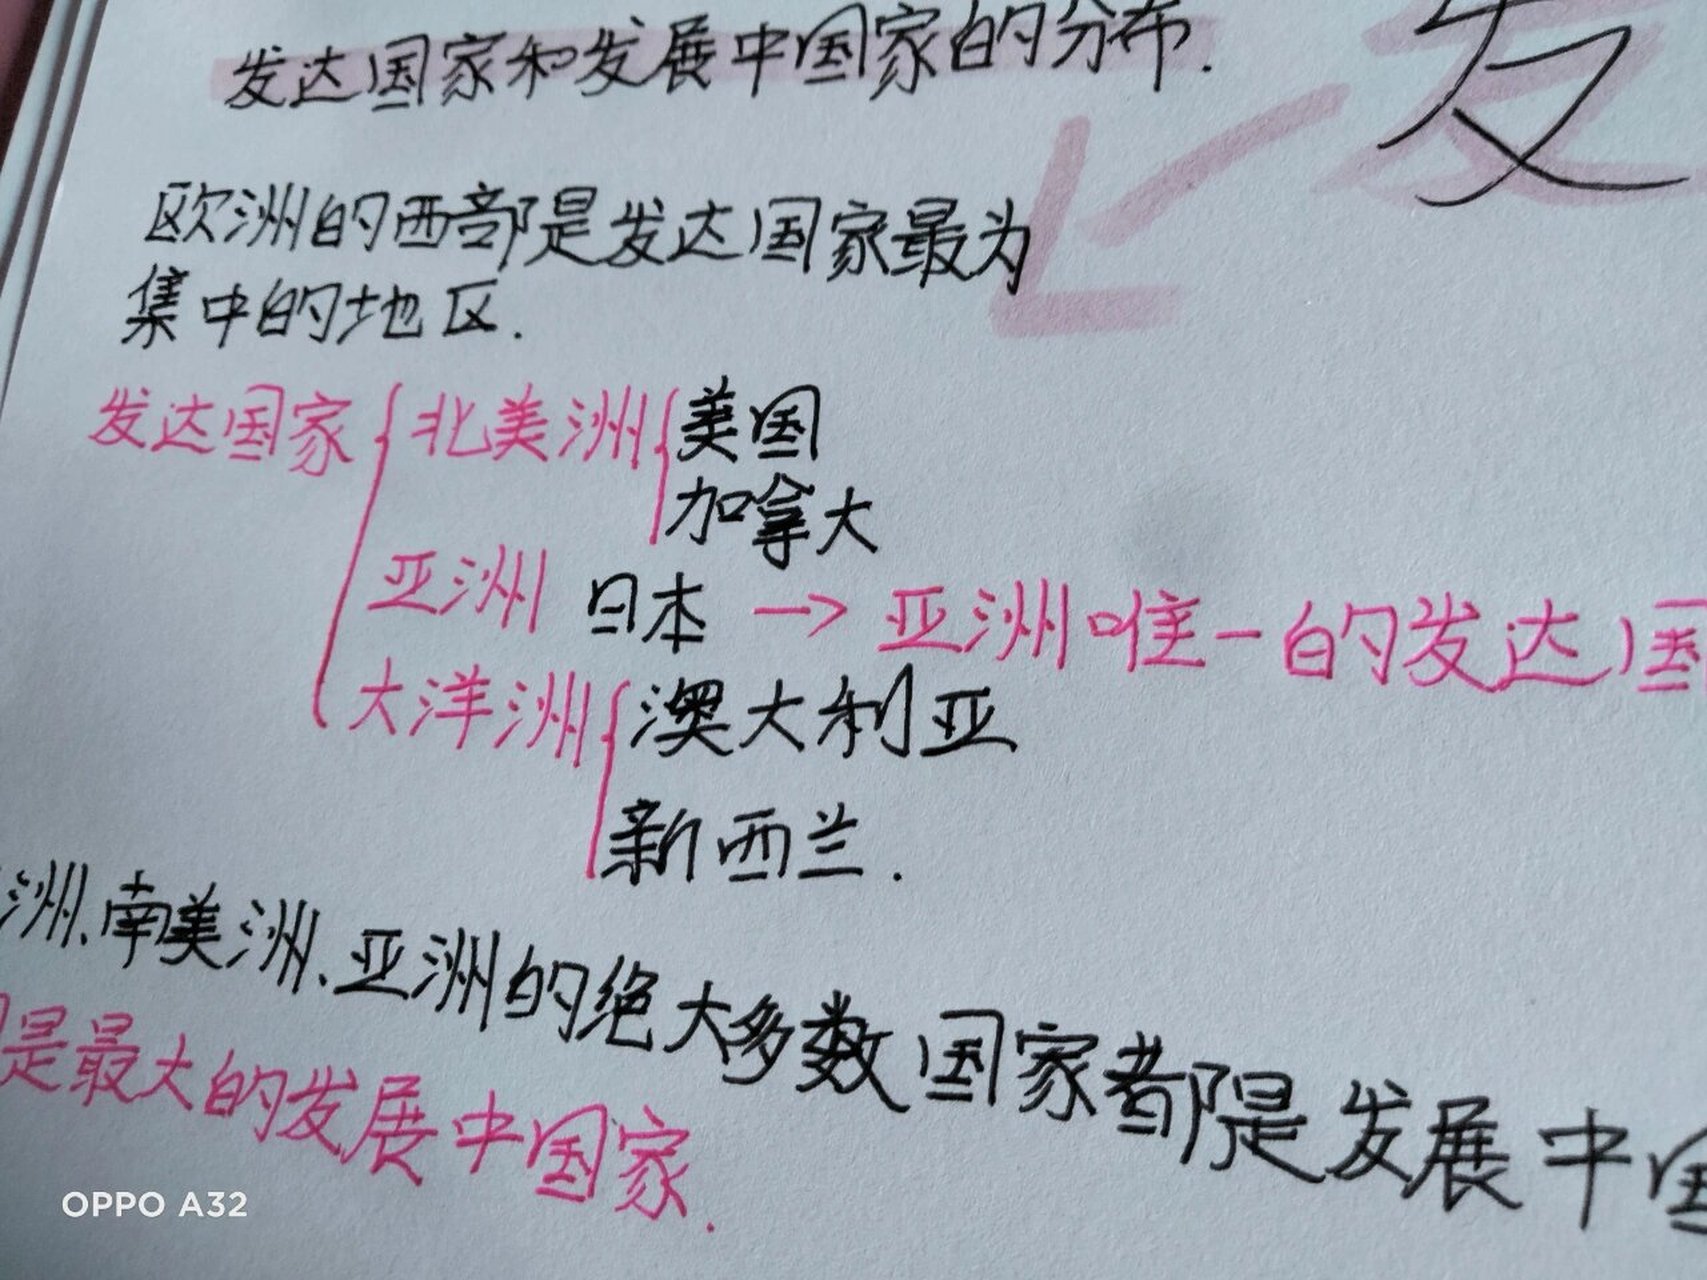 发达国家和发展中国家的分布.
发
欧洲的西部是发达国家最为
集中的地区.
发达国家 北美洲 美国
加拿大
亚洲 日本 → 亚洲唯一的发达国
大洋洲 澳大利亚
新西兰.
洲、南美洲、亚洲的绝大多数国家都是发展中国
是最大的发展中国家.
OPPO A32